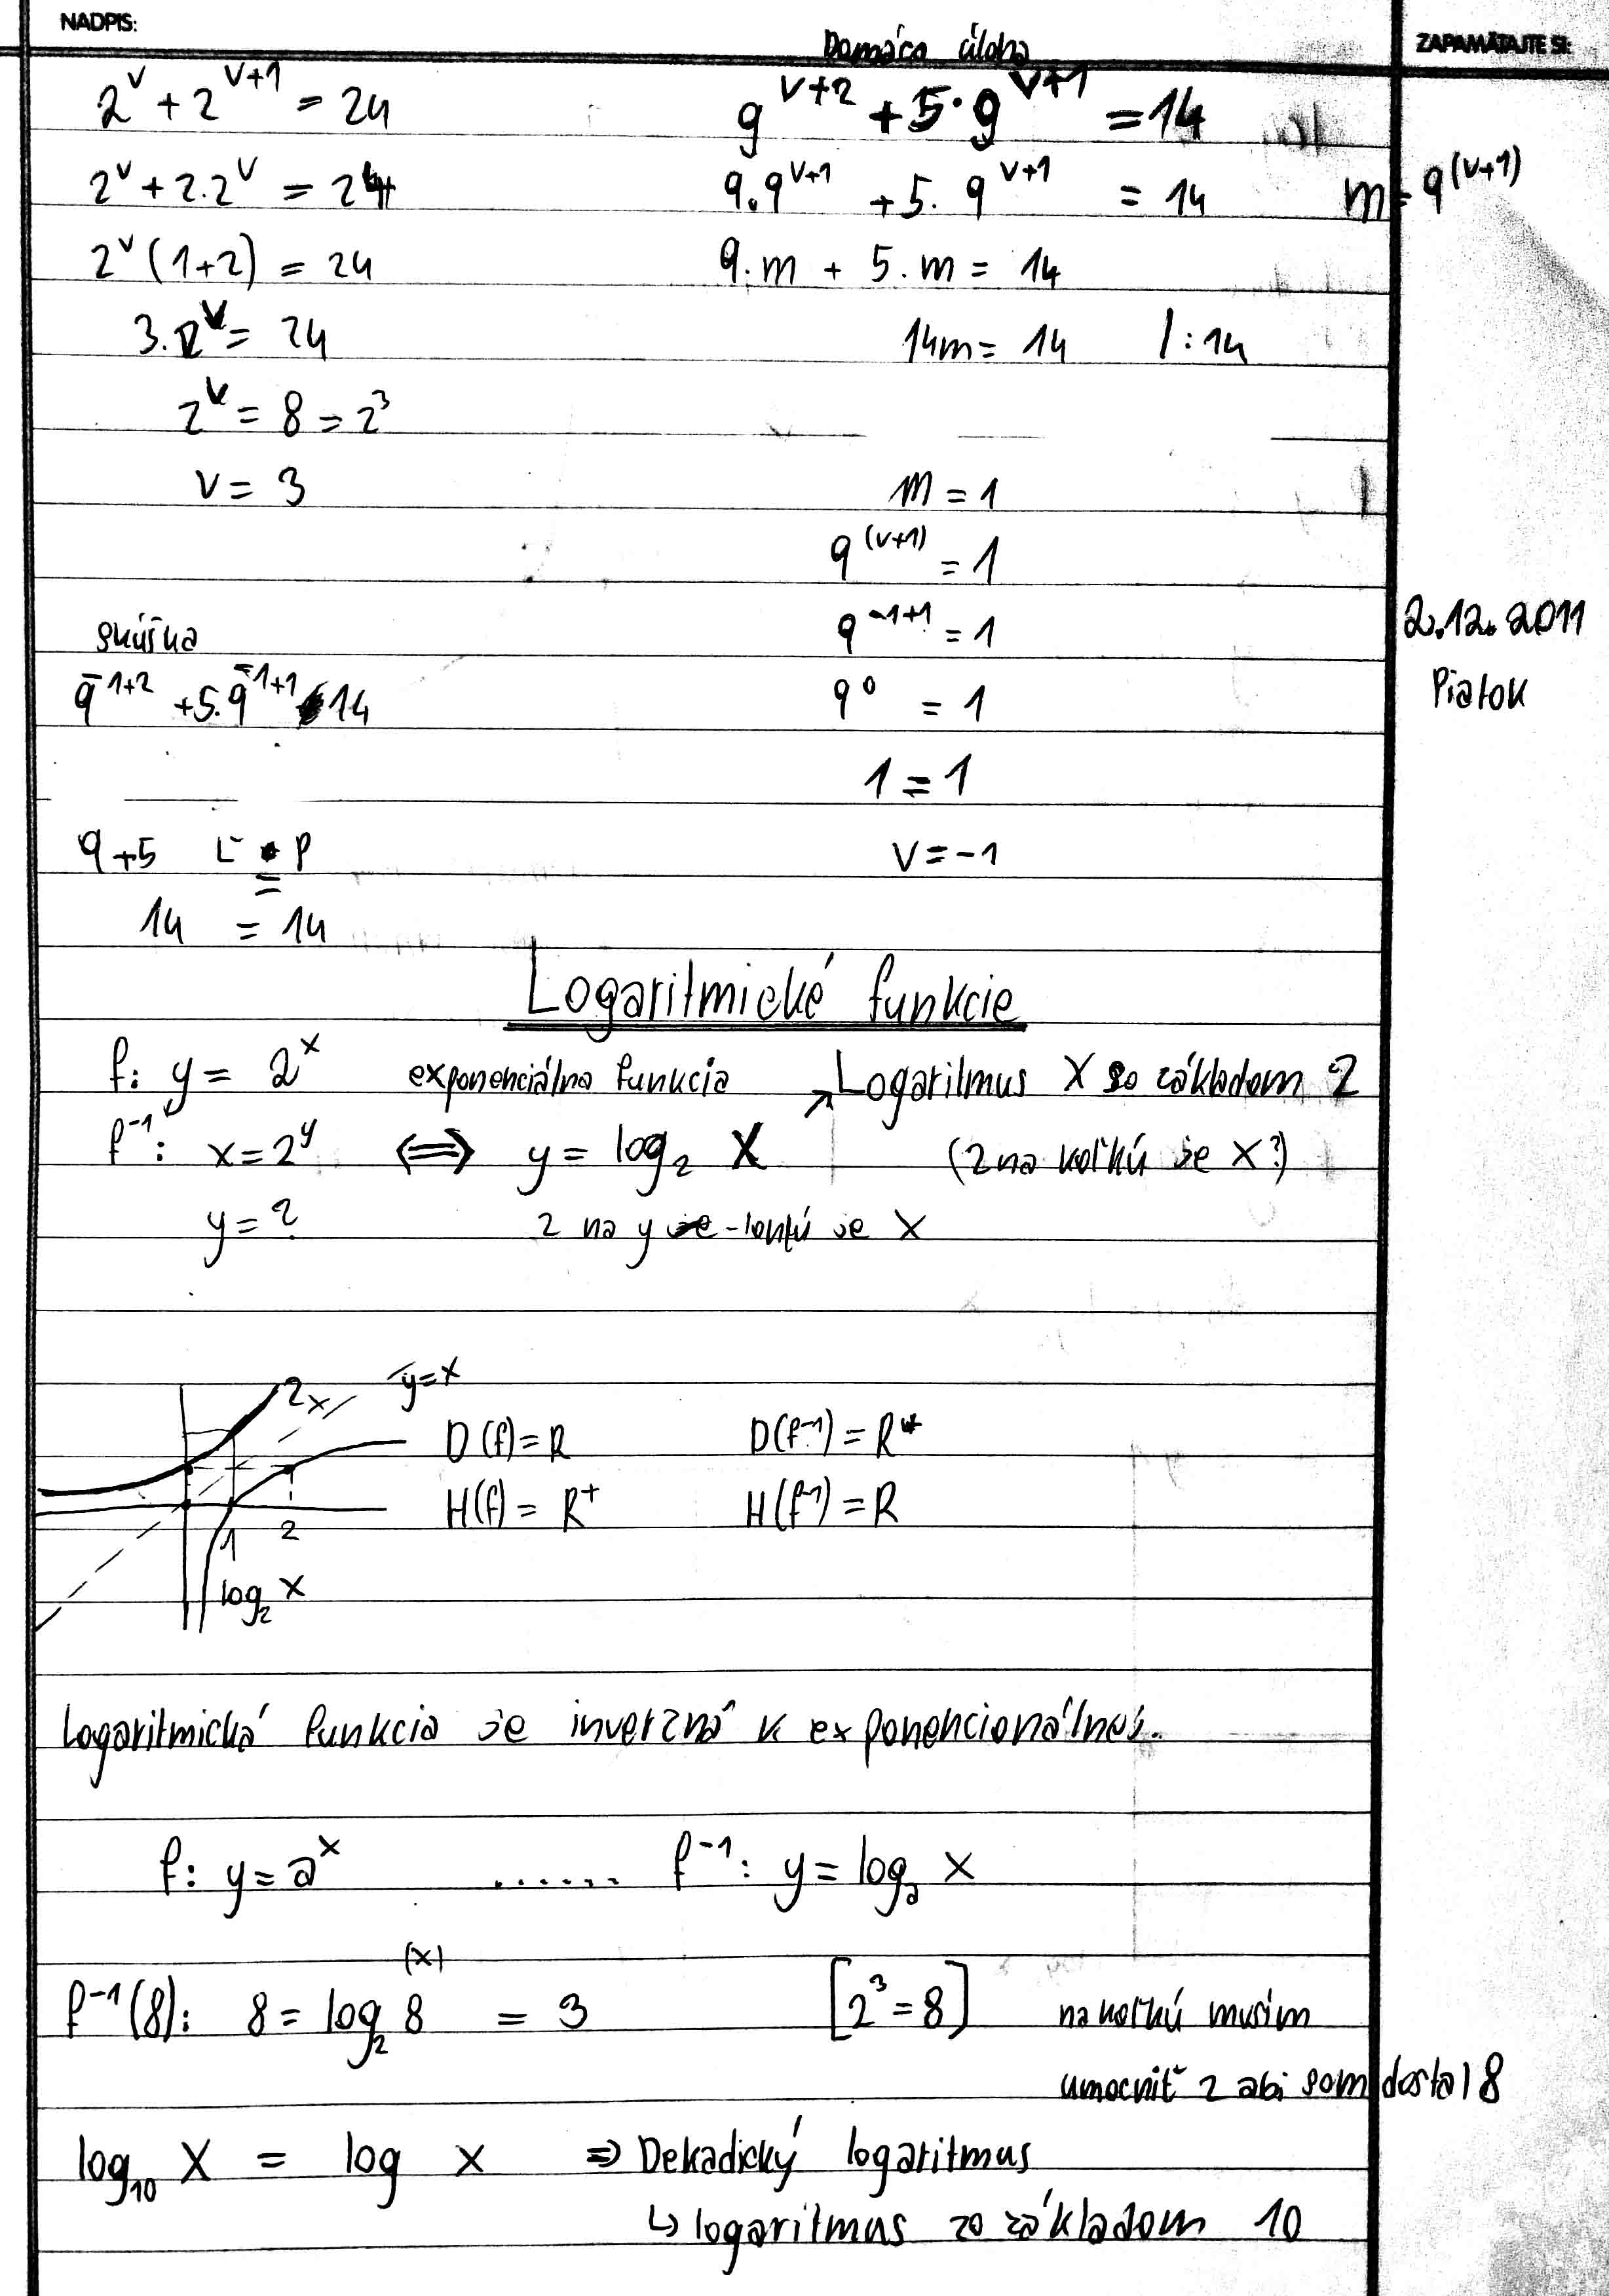 NADPIS:
ZAPAMÄTAJTE SI:
Domáca úloha
2^v + 2^(v+1) = 24
2^v + 2.2^v = 24
2^v (1+2) = 24
3.2^v = 24
2^v = 8 = 2^3
v = 3
9^(v+2) + 5.9^(v+1) = 14
9.9^(v+1) + 5.9^(v+1) = 14
m = 9^(v+1)
9.m + 5.m = 14
14m = 14 /:14
m = 1
9^(v+1) = 1
9^(-1+1) = 1
9^0 = 1
1 = 1
v = -1
2.12.2011
Piatok
skúška
9^(-1+2) + 5.9^(-1+1) 14
9+5 L = P
14 = 14
Logaritmické funkcie
f: y = 2^x exponenciálna funkcia Logaritmus X so základom 2
f^-1: x = 2^y ⇔ y = log_2 X (2 na koľkú je X?)
y = ? 2 na y je X
2^x y=x
D(f) = R D(f^-1) = R^+
H(f) = R^+ H(f^-1) = R
1 2
log_2 x
Logaritmická funkcia je inverzná k exponencionálnej.
f: y = a^x ...... f^-1: y = log_a x
(x)
f^-1(8): 8 = log_2 8 = 3 [2^3 = 8] na koľkú musím
umocniť 2 abi som dostal 8
log_10 X = log x ⇒ Dekadický logaritmus
↳ logaritmus zo základom 10